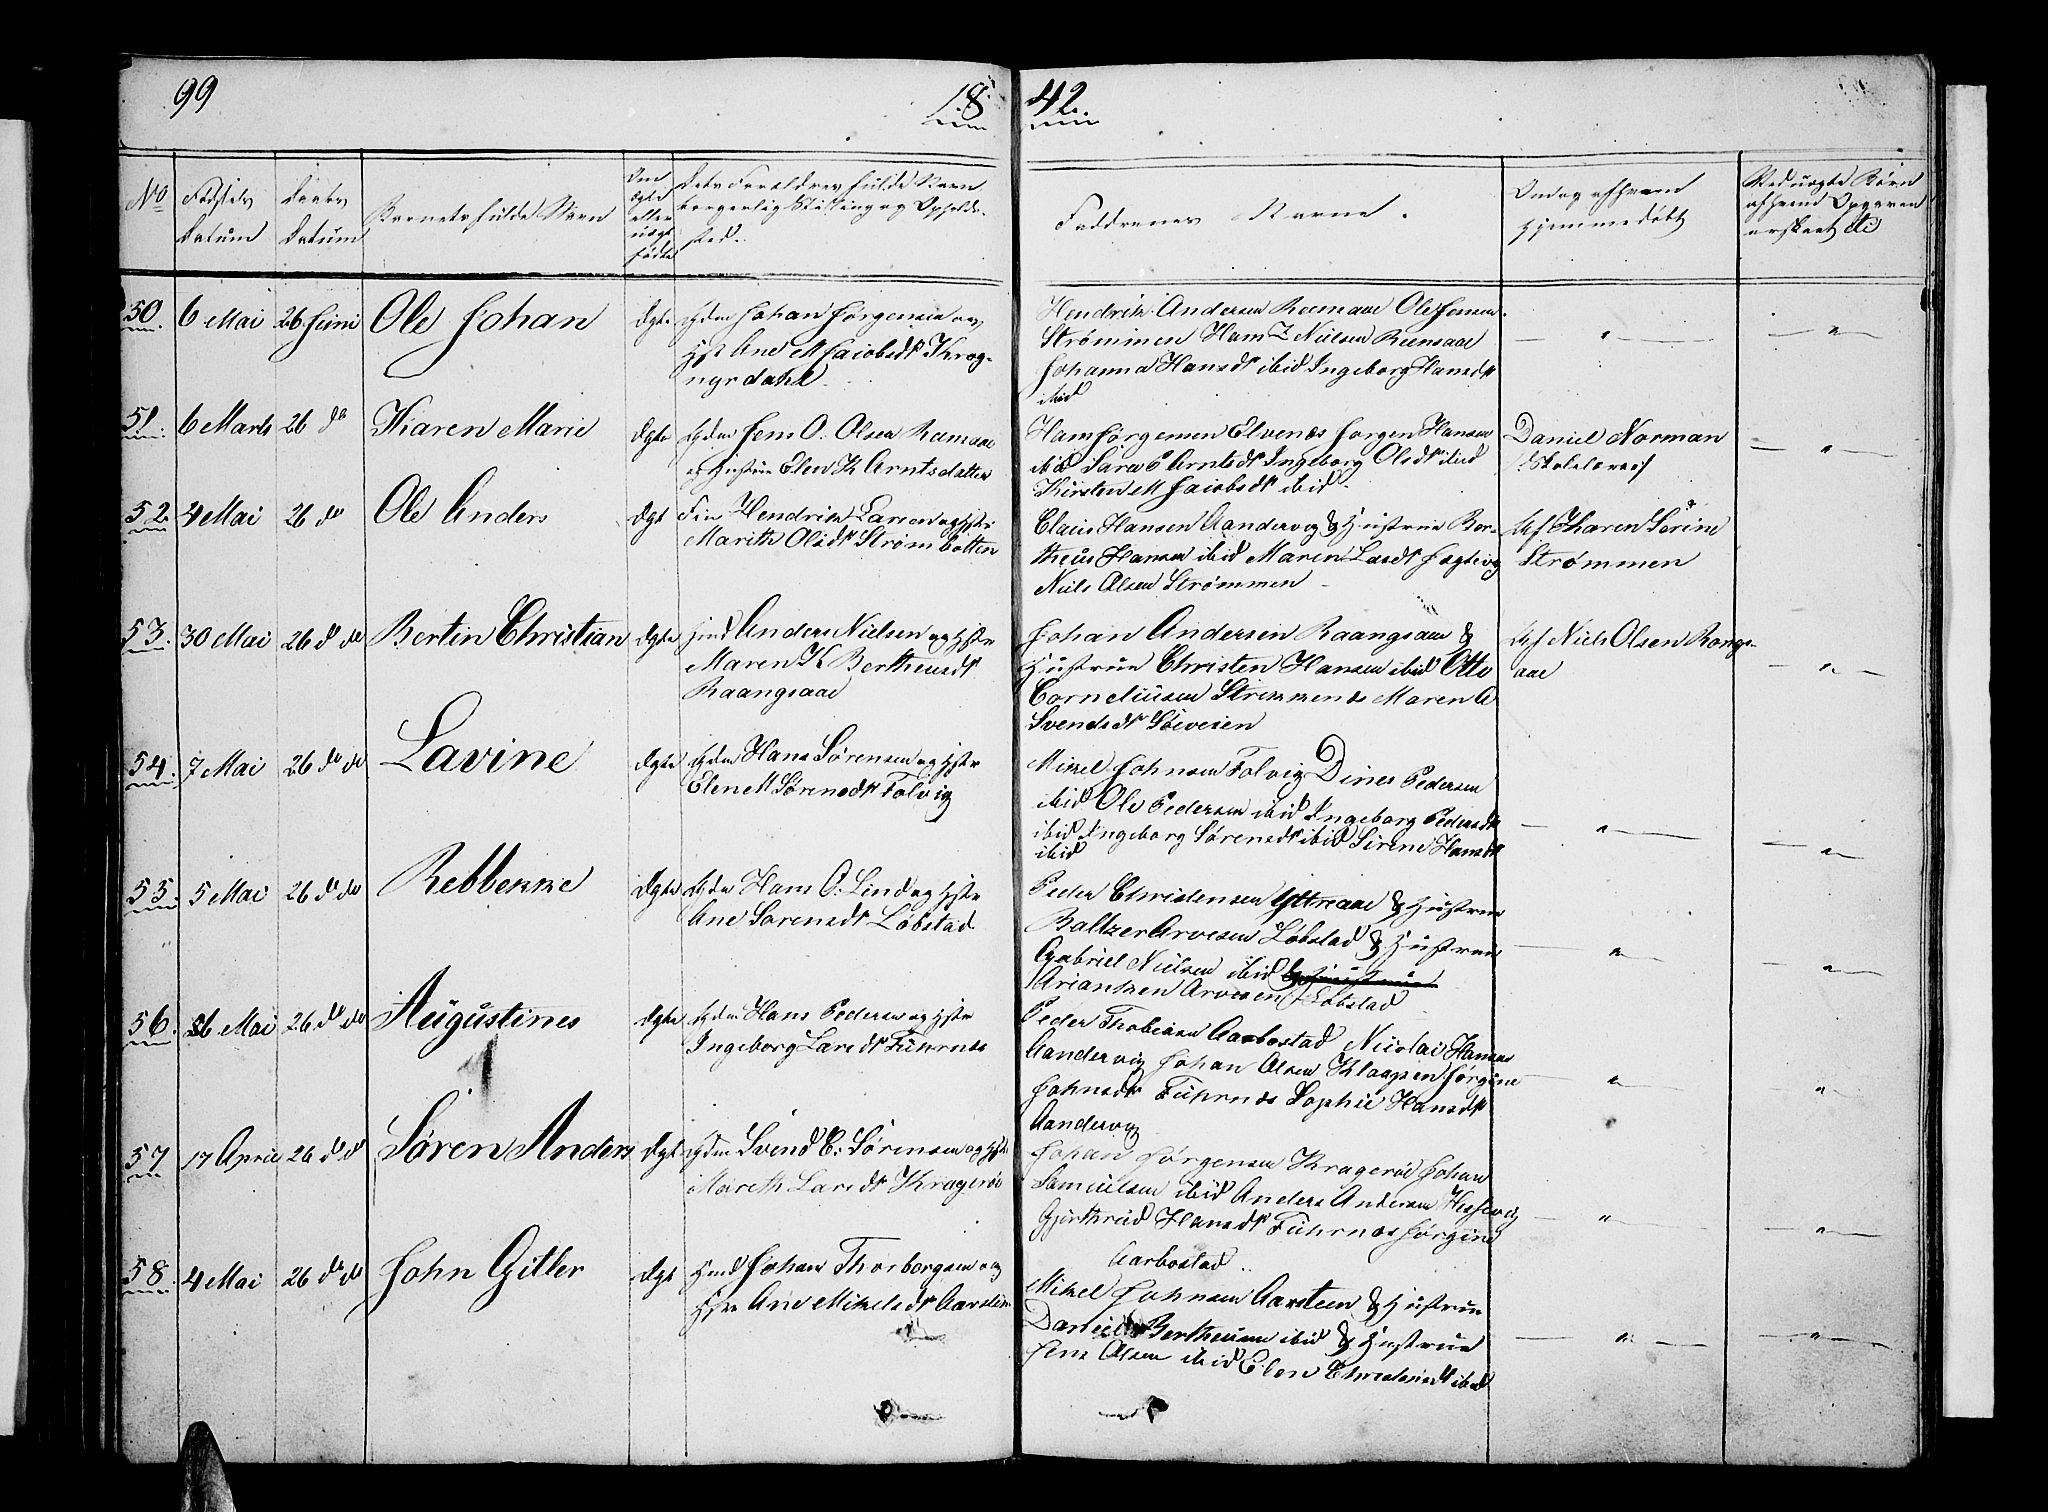 99
18
42.
No
Fødsels
Datum
Daabs
Datum
Barnets fulde Navn
Om
ægte
eller
uægt
fødte
Dets Forældres fulde Navn
borgerlig Stilling og Opholds-
sted.
Faddrenes Navne.
Om dag
hjemmedøbt
Ved uægte Børn
50. 6 Mai 26 Juni Ole Johan Ægte
Johan Jørgensen og
Hst Ane M Jacobsdt Krog-
nyrdahl
Hendrik Andersen Ole Jensen
Strømmen Nielsen
Johanna Hansdt ibid Ingeborg Hansdt
ibid
51. 6 Marts 26 do Karen Marie Ægte
Jens O. Olsen
og Hustrue Elen K Arntsdatter
Hans Jørgensen Elvenes Jørgen Hansen
ibid Sara P Arntsdt Ingeborg Olsdt ibid
Kirsten M Jacobsdt ibid
Daniel Norman
Skolelærer
52. 4 Mai 26 do Ole Anders Ægt
Fin Hendrik Larsen og Hstr
Marith Olsdt Strømbotten
Claus Hansen Aandervog & Hustrue Ber-
theus Hansen ibid Maren Larsdt
Niels Olsen Strømmen
Af Karen Sørine
Strømmen
53. 30 Mai 26 do do Bertin Christian Ægte
Hmd Anders Nielsen og Hstr
Maren K Bertheusdt
Raangsaae
Johan Andersen Raangsaae &
Hustrue Christen Hansen ibid Otto
Corneliusen Maren A
Svendsdt Søeveien
Af Niels Olsen Rongs-
aae
54. 7 Mai 26 do do Lavine Ægte
Hans Sørensen og Hstr
Elen M Sørensdt Folvig
Mikel Johnsen Folvig Diner Pedersen
ibid Ole Pedersen ibid Ingeborg Pedersdt
ibid Ingeborg Sørensdt ibid Sirene Hansdt
ibid
55. 5 Mai 26 do do Rebbekke Ægte
Hans O. Lind og Hstr
Ane Sørensdt Løbstad
Peder Christensen & Hustrue
Baltzer Arvesen Løbstad & Hustrue
Gabriel Nielsen ibid & Hustrue
Ariantzen Arvesen Løbstad
56. 26 Mai 26 do do Augustines Ægte
Hans Pedersen og Hstr
Ingeborg Larsdt Fuhrnes
Peder Thobiesen Aarbostad Nicolai Hansen
Aandervig Johan Olsen Jørgine
Johnsdt Fuhrnes Sophie Hansdt
Aandervog
57 17 April 26 do do Søren Anders Ægt
Svend E. Sørensen og Hstr
Mareth Larsdt Kragerøe
Johan Jørgensen Kragerøe Johan
Samuelsen ibid Anders Andersen
Gjerthrud Hansdt Fuhrnes Jørgine
Aarbostad.
58. 4 Mai 26 do do John Gitler Ægt
Hmd Johan Thorborgsen og
Hstr Ane Mikelsdt Aarsteen
Mikel Johnsen Aarsteen & Hustrue
Daniel Bertheusen ibid & Hustrue
Jens Olsen ibid Elen ibid